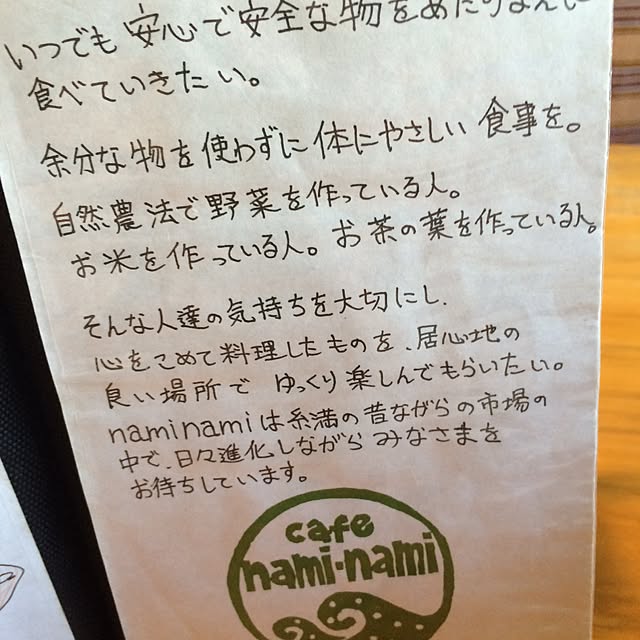 いつでも安心で安全な物をあたりまえに
食べていきたい。
余分な物を使わずに体にやさしい食事を。
自然農法で野菜を作っている人。
お米を作っている人。お茶の葉を作っている人。
そんな人達の気持ちを大切にし、
心をこめて料理したものを、居心地の
良い場所でゆっくり楽しんでもらいたい。
naminamiは糸満の昔ながらの市場の
中で、日々進化しながらみなさまを
お待ちしています。
cafe
nami-nami